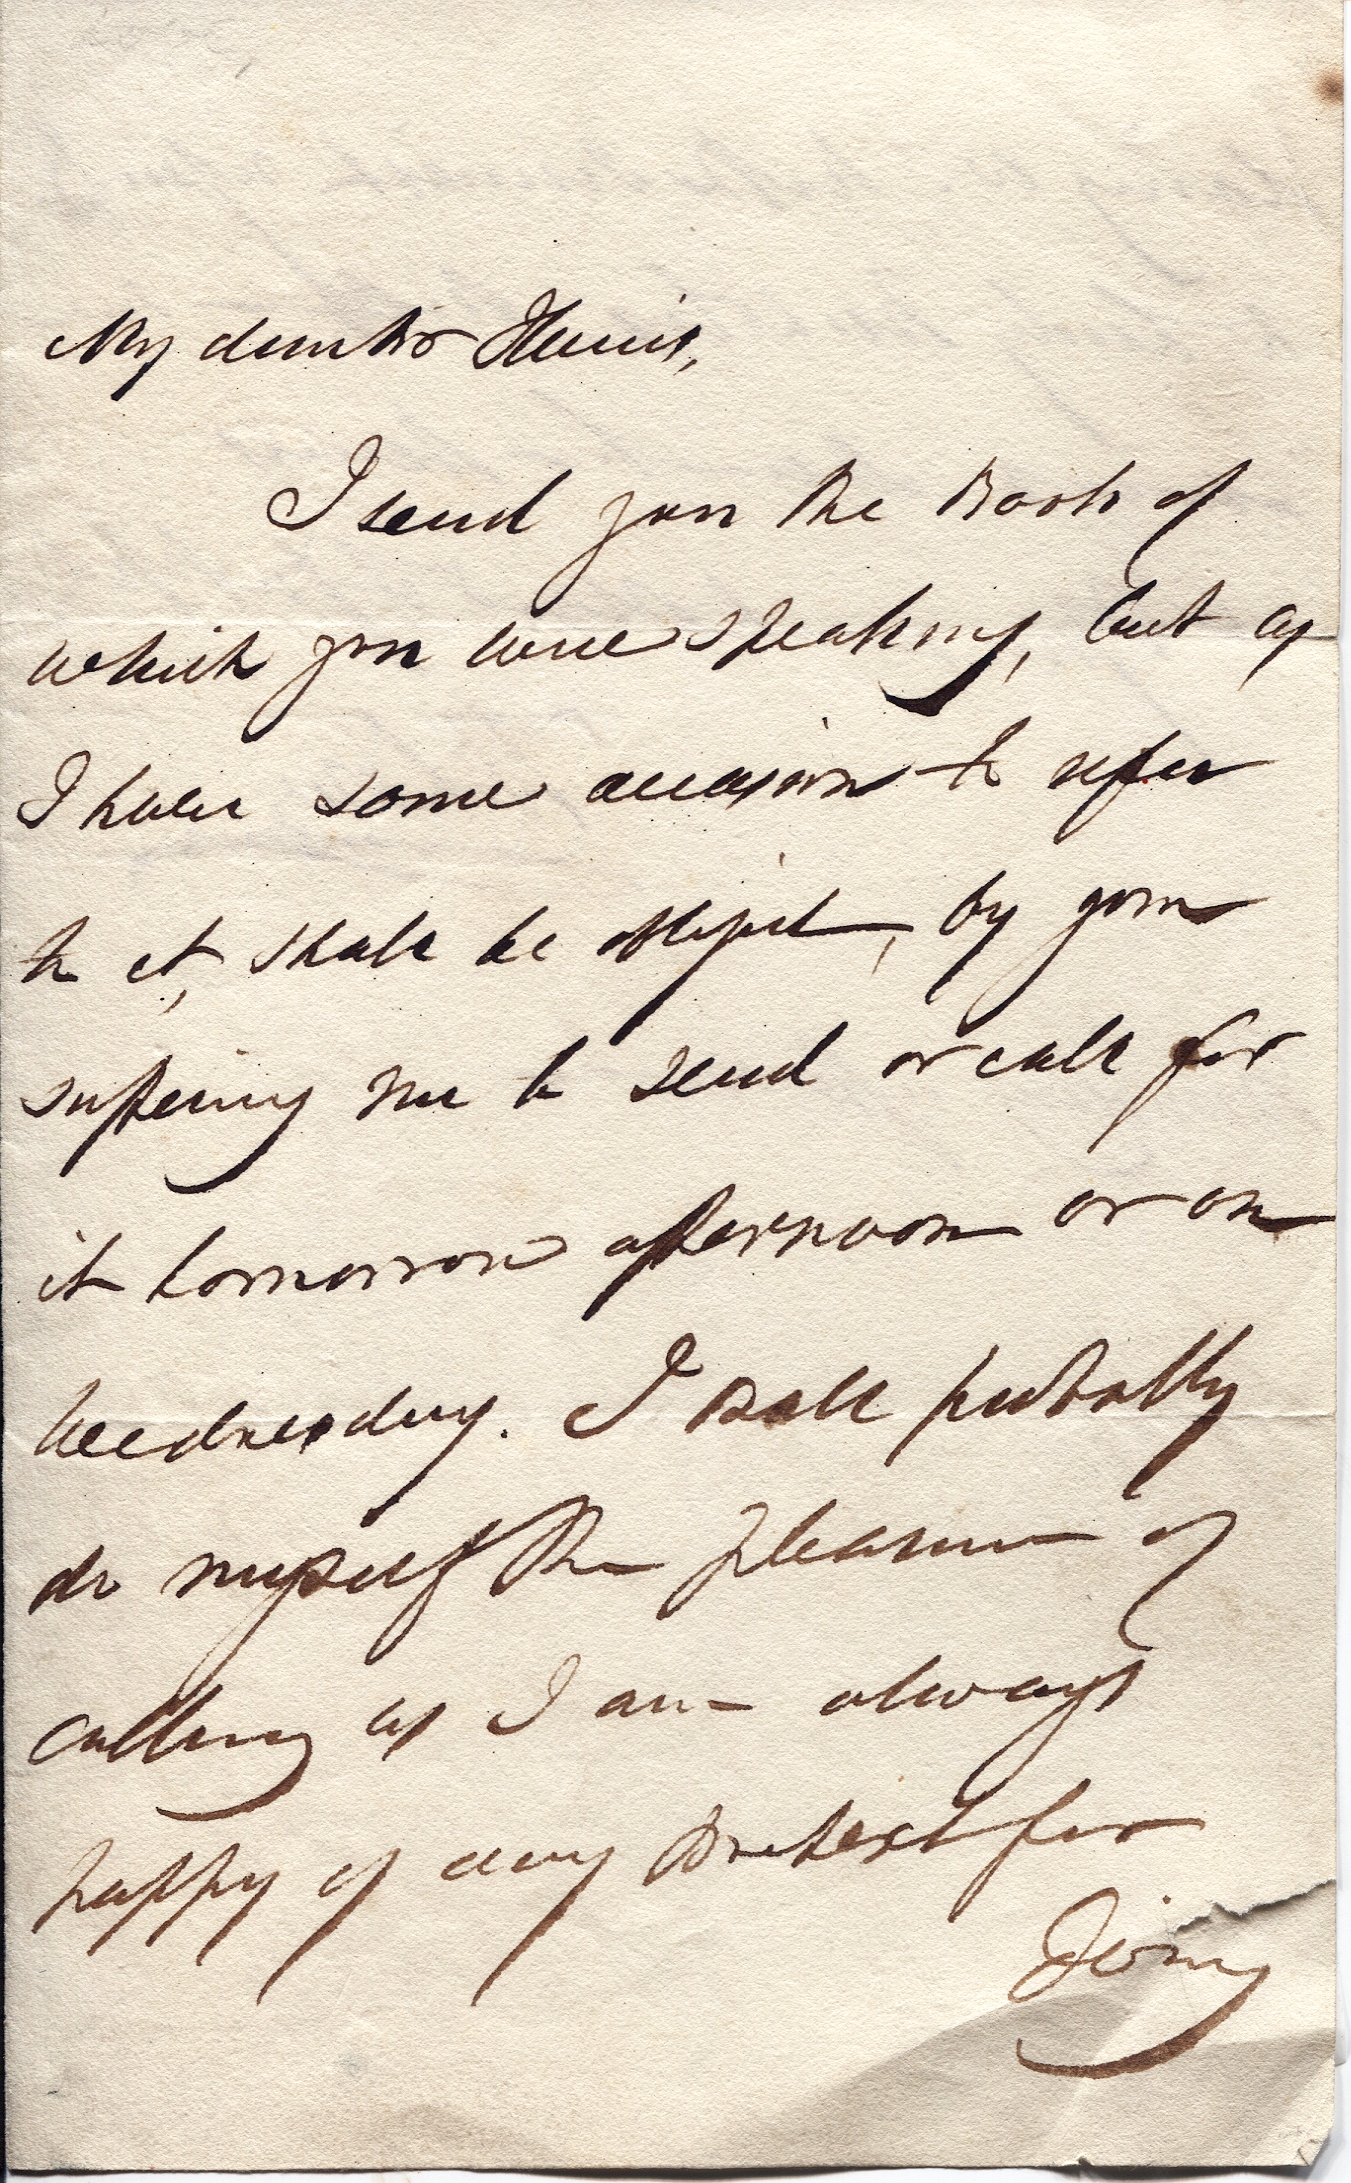 My dear Mrs
I send you the Book of
which you were speaking, but as
I have some occasion to refer
to it, shall be obliged, by your
suffering me to send or call for
it tomorrow afternoon or on
Wednesday. I shall probably
do myself the pleasure of
calling as I am always
happy of any Pretext for
doing